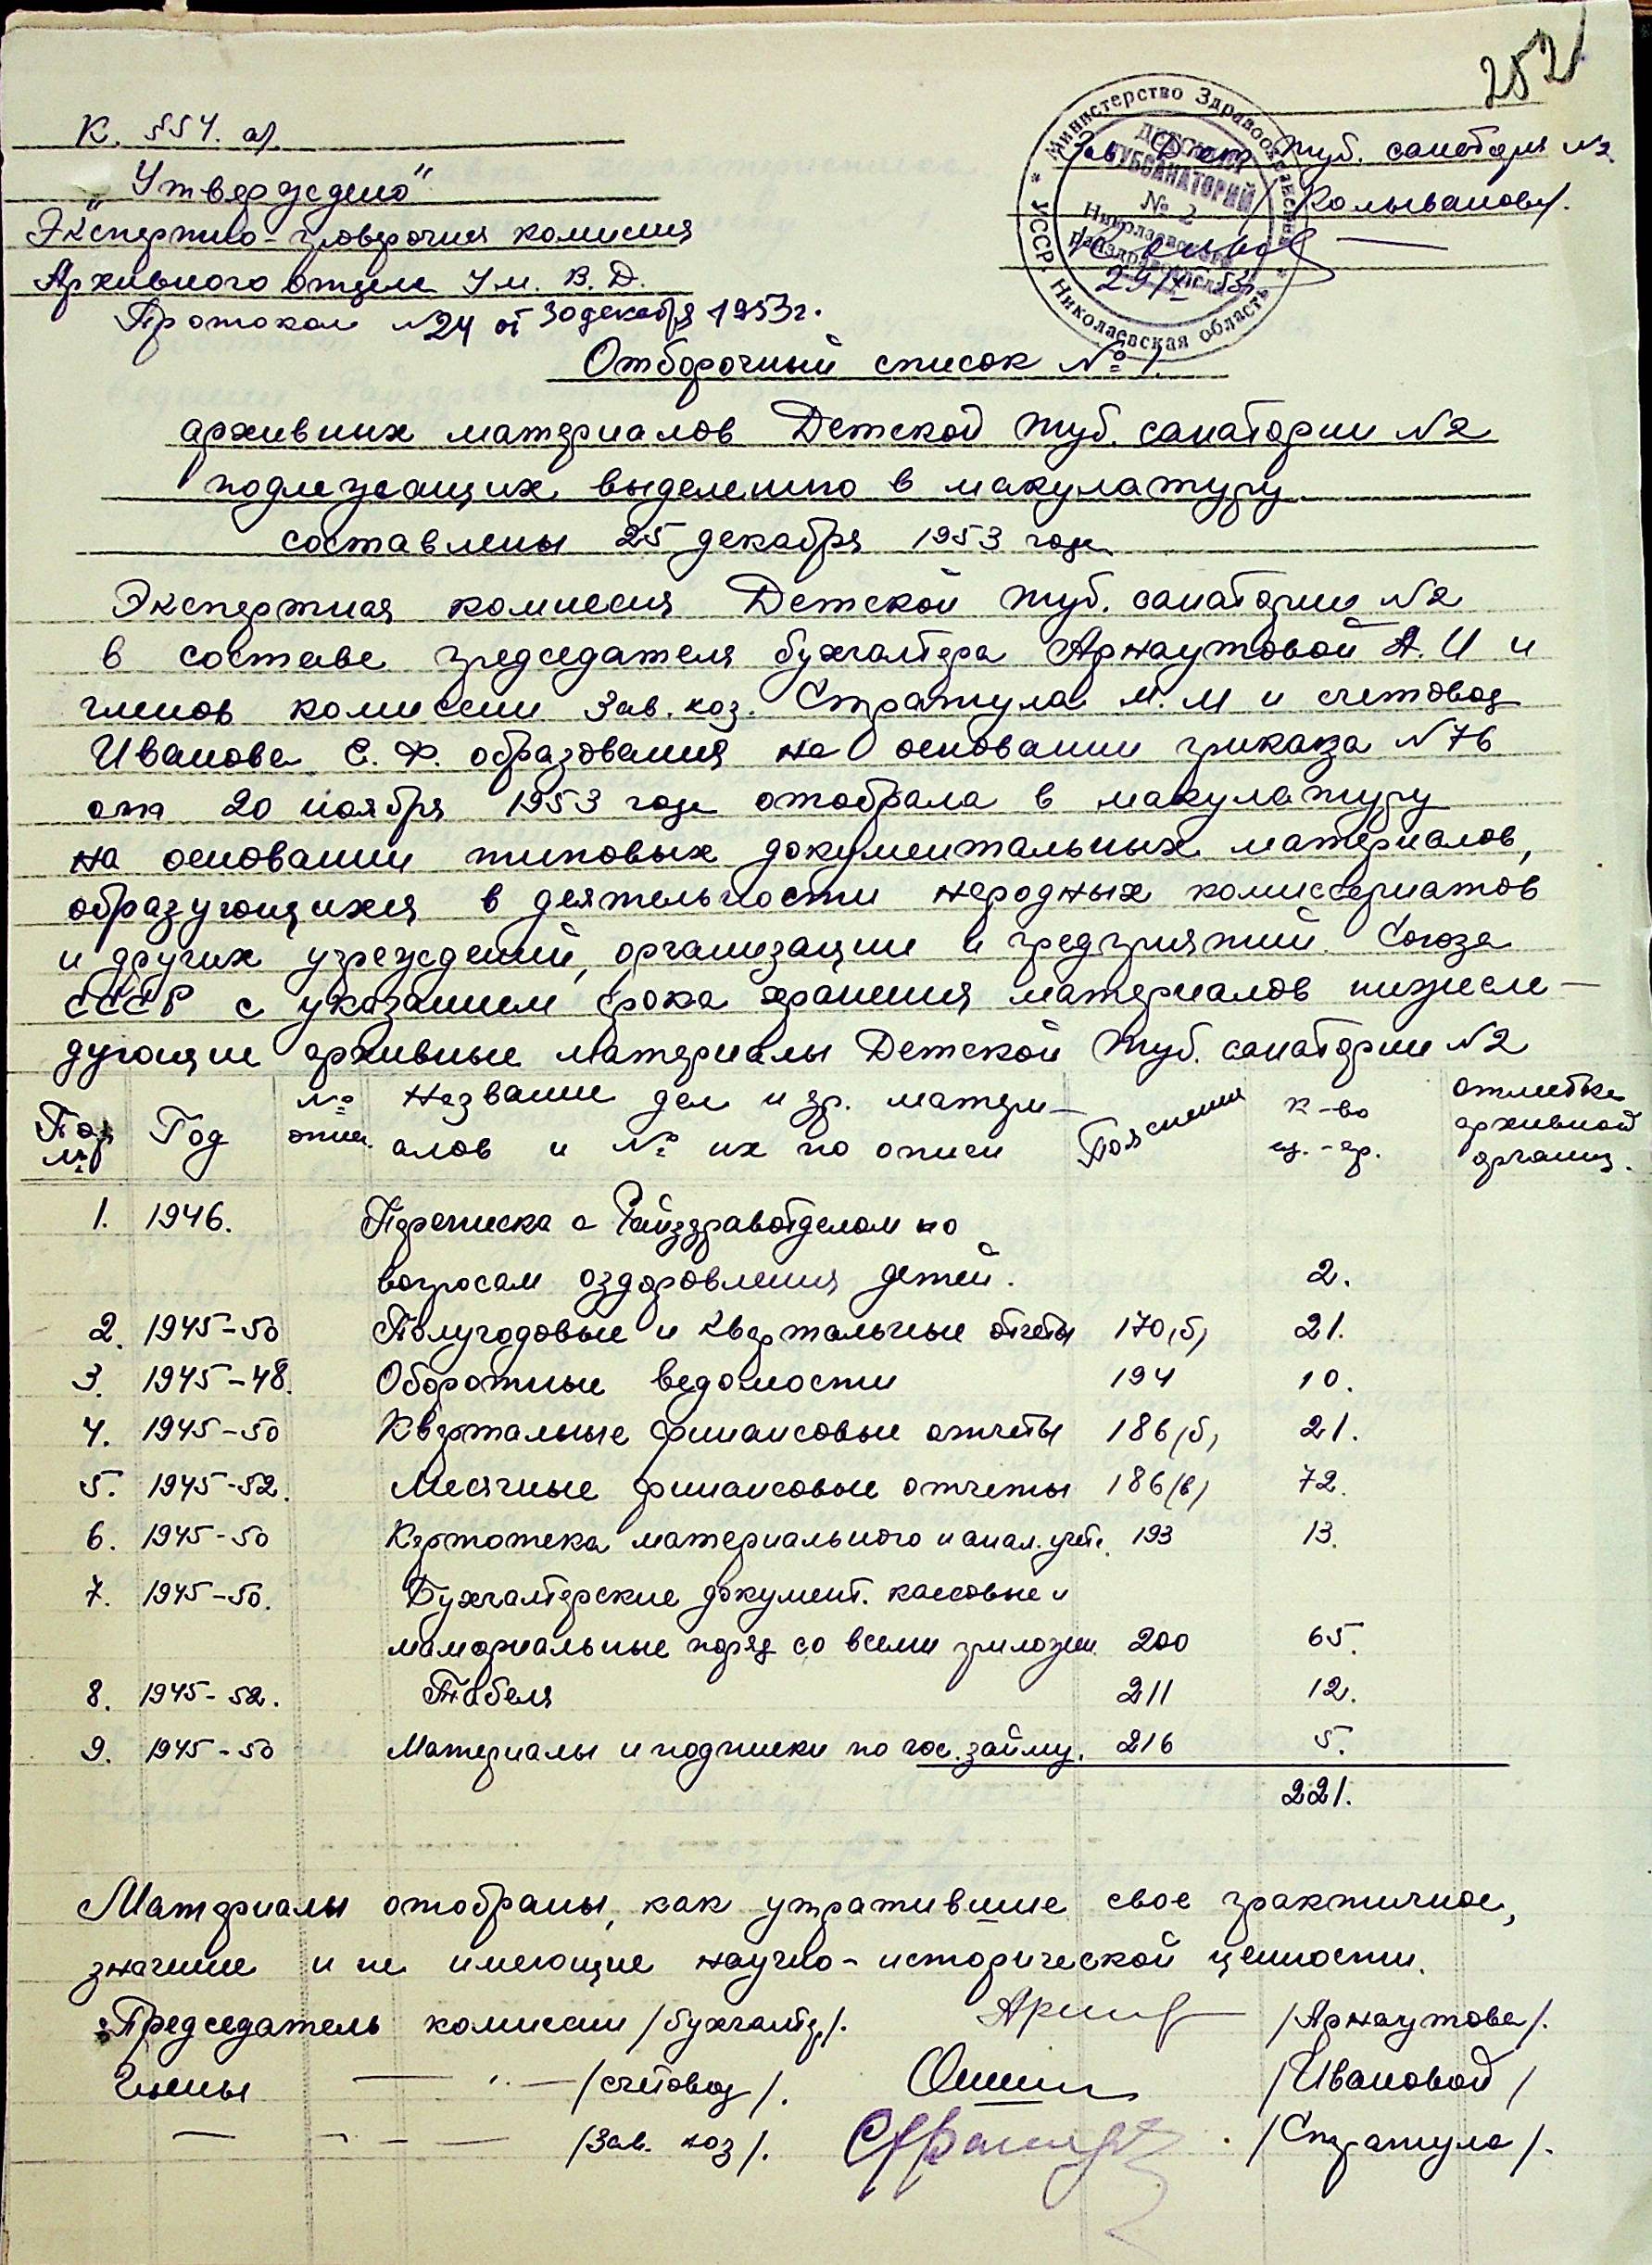 252
К. 554. а).
Зав. Дет. туб. санатория №2
„Утверждено"
/Колыванова/.
Экспертно-проверочная комиссия
Архивного отдела У.м. В. Д.
29/XII 53г.
Протокол №24 от 30 декабря 1953 г.
Министерство Здравоохранения * УССР. Николаевская область
ДЕТСКИЙ
ТУБСАНАТОРИЙ
№ 2
Николаевского
райздравотдела
Отборочный список № 1.
архивных материалов Детской туб. санатории №2
подлежащих выделению в макулатуру
составлены 25 декабря 1953 года
Экспертная комиссия Детской туб. санатории №2
в составе председателя бухгалтера Арнаутовой А. И и
членов комиссии Зав. хоз. Стратула М. М и счетовод
Иванова Е. Ф. образования на основании приказа №76
от 20 ноября 1953 года отобрала в макулатуру
на основании типовых документальных материалов,
образующихся в деятельности народных комиссариатов
и других учреждений, организации и предприятий Союза
СССР с указанием срока хранения материалов нижесле-
дующие архивные материалы Детской туб. санатории №2
Пор № Год № описи Название дел и др. матери- Пояснения к-во отметка
алов и № их по описи ед.-хр. архивной
органы.
1. 1946. Переписка с Райздравотделом по
вопросам оздоровления детей. 2.
2. 1945-50 Полугодовые и квартальные отчеты 170(б) 21.
3. 1945-48. Оборотные ведомости 194 10.
4. 1945-50 Квартальные финансовые отчеты 186(б) 21.
5. 1945-52. Месячные финансовые отчеты 186(в) 72.
6. 1945-50 Картотека материального и анал. учёт. 193 13.
7. 1945-50. Бухгалтерские документ. кассовые и
мамориальные поряд со всеми приложен. 200 65.
8. 1945-52. Табеля 211 12.
9. 1945-50 Материалы и подписки по гос. займу. 216 5.
221.
Материалы отобраны, как утратившие свое практичное,
значение и не имеющие научно-исторической ценности.
Председатель комиссии /бухгалтер/. /Арнаутова/.
Члены — " — /счетовод/. /Ивановой/
— " — /Зав. хоз/. /Стратула/.